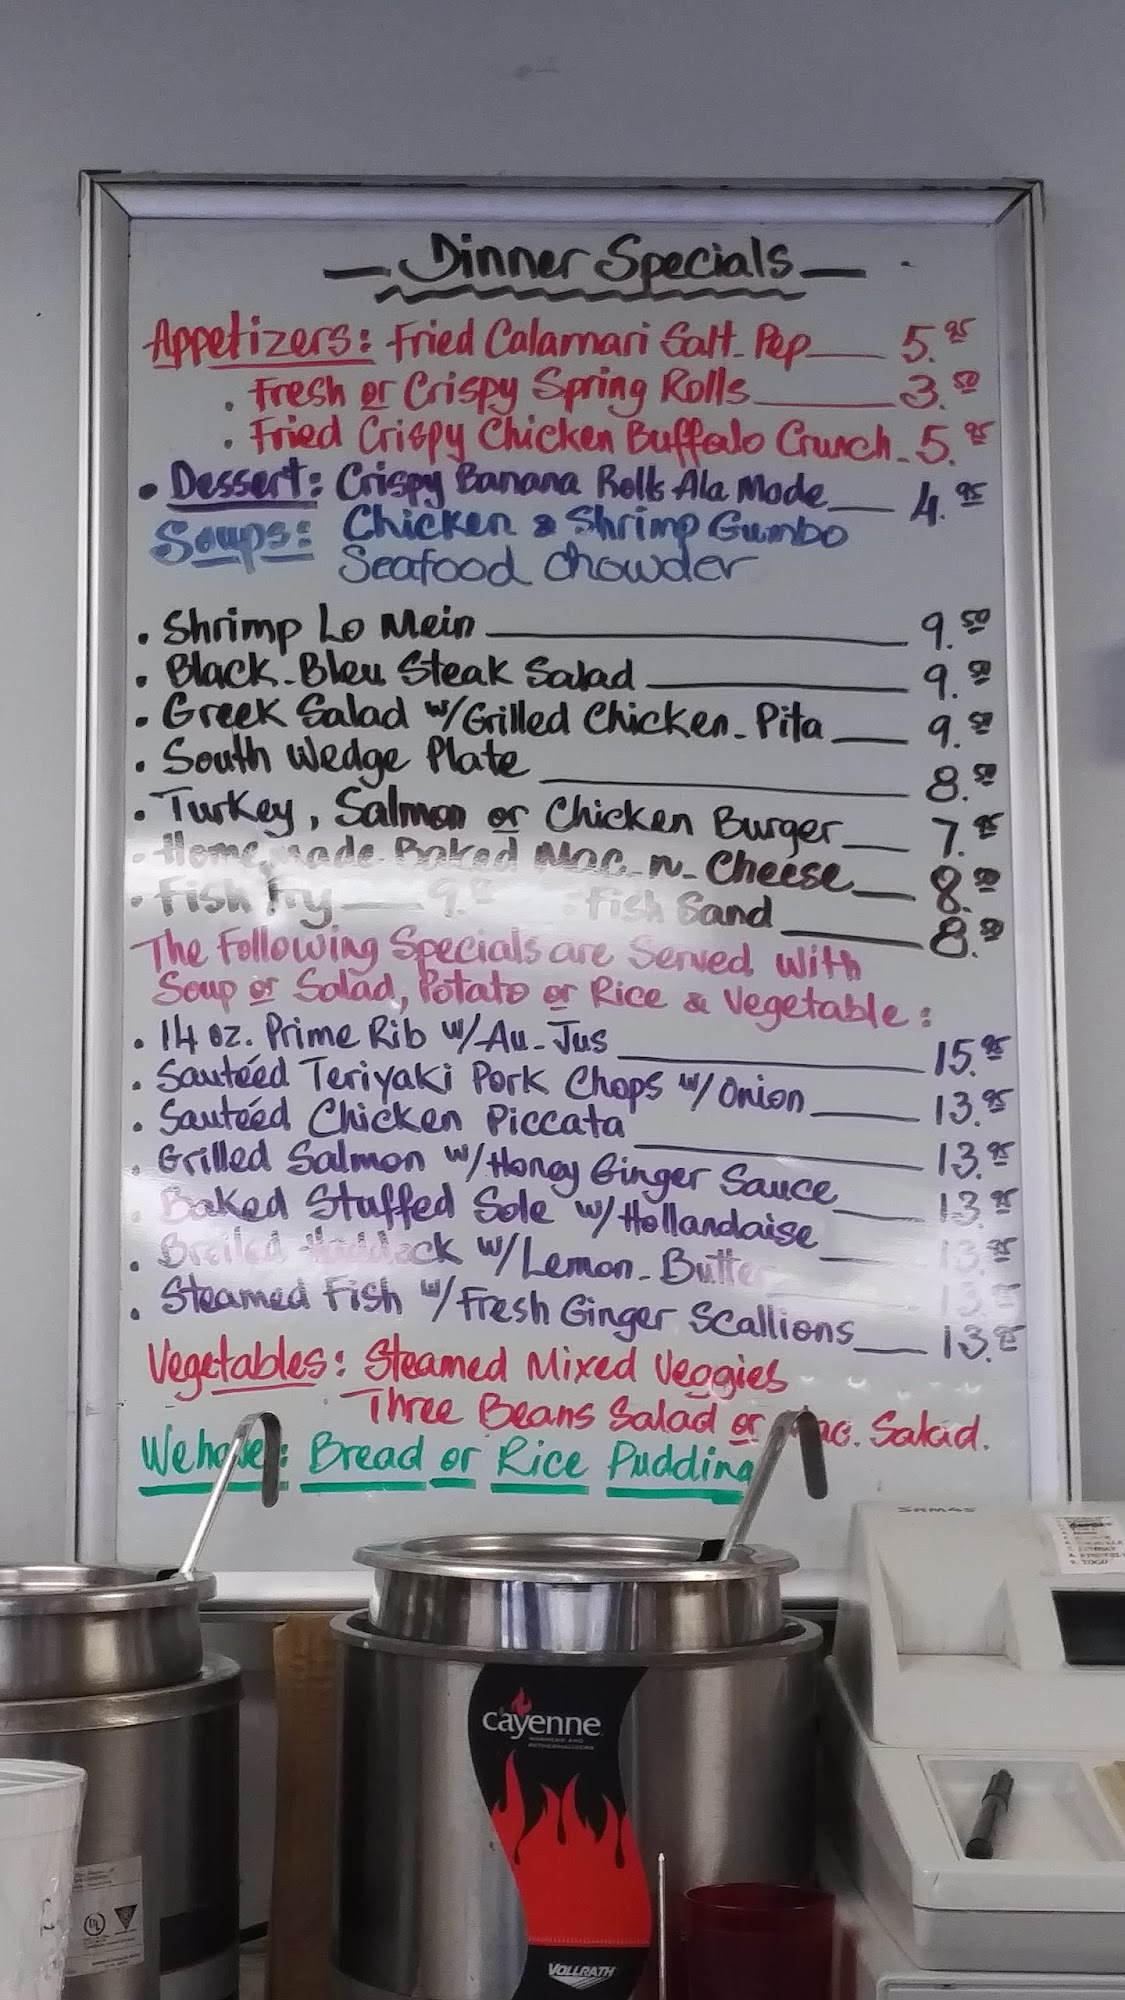 Dinner Specials
Appetizers: Fried Calamari Salt-Pep 5.95
. Fresh or Crispy Spring Rolls 3.50
. Fried Crispy Chicken Buffalo Crunch - 5.95
• Dessert: Crispy Banana Rolls Ala Mode 4.95
Soups: Chicken & Shrimp Gumbo
Seafood chowder
. Shrimp Lo Mein 9.50
. Black-Bleu Steak Salad 9.50
. Greek Salad w/Grilled Chicken-Pita 9.50
. South Wedge Plate 8.50
. Turkey, Salmon or Chicken Burger 7.95
. Homemade Baked Mac-n-Cheese 8.50
. Fish Fry 9. . Fish Sand 8.50
The Following Specials are Served With
Soup or Salad, Potato or Rice & Vegetable:
. 14 oz. Prime Rib w/Au-Jus 15.95
. Sautéed Teriyaki Pork Chops w/Onion 13.95
. Sautéed Chicken Piccata 13.95
. Grilled Salmon w/Honey Ginger Sauce 13.95
. Baked Stuffed Sole w/Hollandaise 13.95
. Broiled Haddock w/Lemon-Butte 13.95
. Steamed Fish w/Fresh Ginger Scallions 13.95
Vegetables: Steamed Mixed Veggies
Three Beans Salad or Mac. Salad.
We have: Bread or Rice Pudding
SAM4S
cayenne
WARMERS AND
RETHERMALIZERS
VOLLRATH
UL
9. TOGO